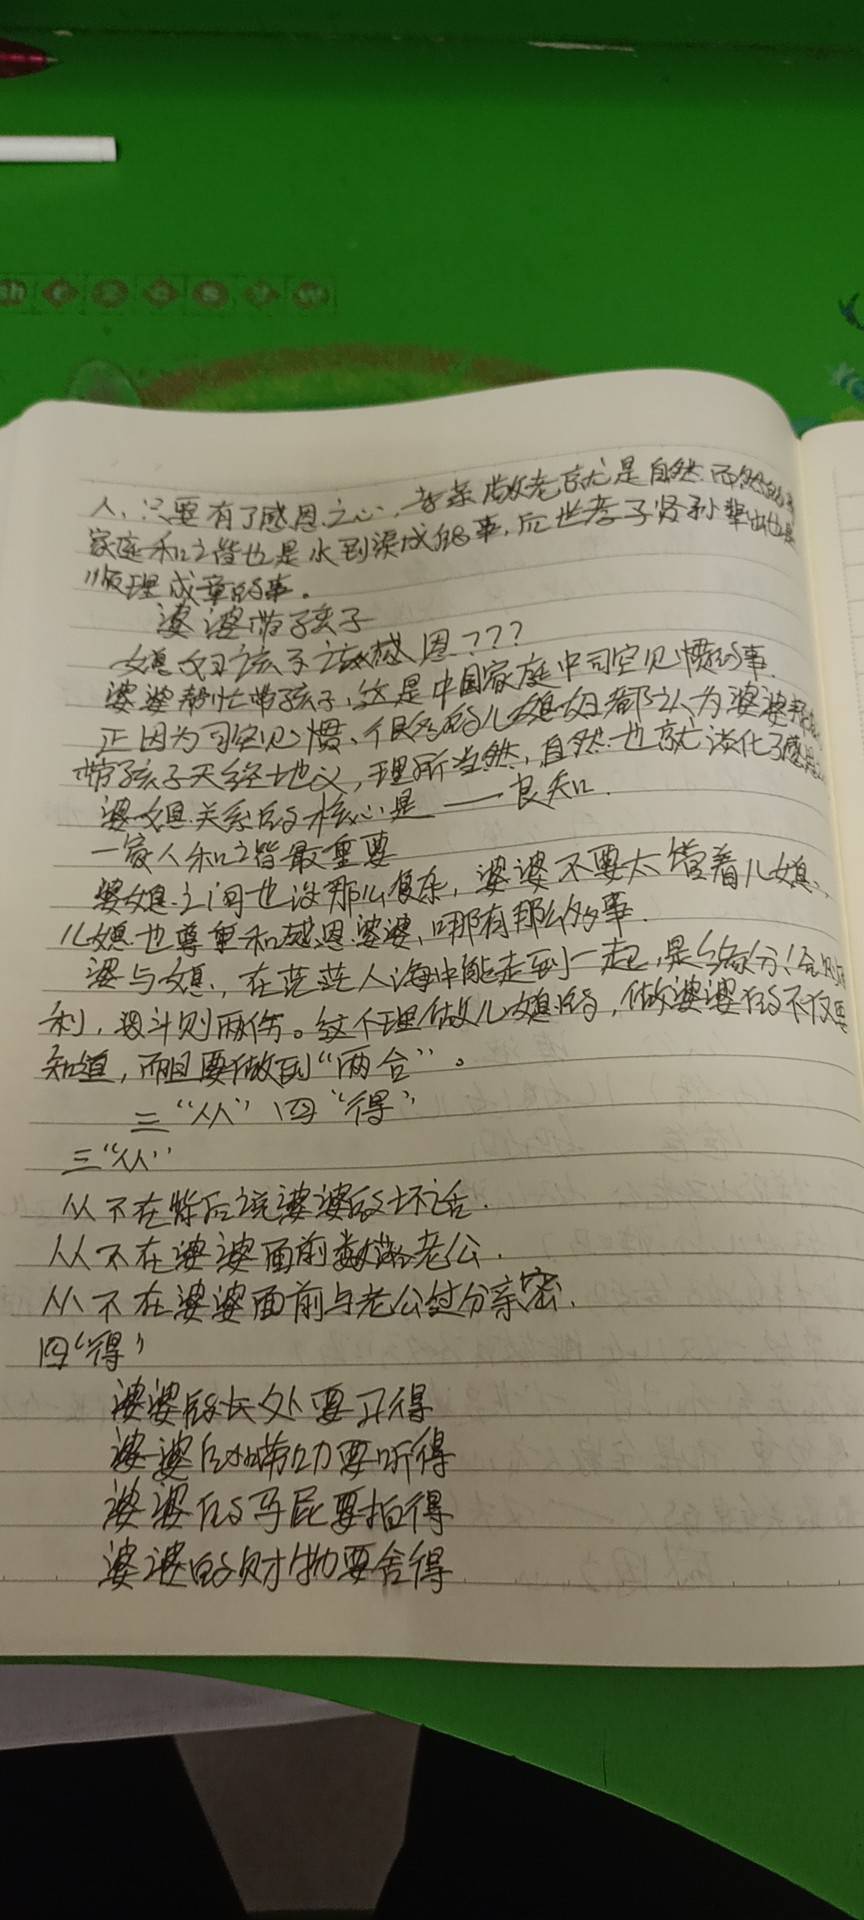 sh r z c s y w
人,只要有了感恩之心,孝亲敬老就是自然而然的事
家庭和谐也是水到渠成的事,后世孝子贤孙辈出也是
顺理成章的事。
婆婆带孩子
媳妇该不该感恩???
婆婆帮忙带孩子,这是中国家庭中司空见惯的事.
正因为司空见惯、很多的儿媳妇都认为婆婆帮忙
带孩子天经地义,理所当然,自然也就淡化了感恩
婆媳关系的核心是——良知.
一家人和谐最重要
婆媳之间也没那么复杂,婆婆不要太管着儿媳,
儿媳也尊重和感恩婆婆,哪有那么多事.
婆与媳,在茫茫人海中能走到一起,是缘分!合则两
利,斗则两伤。这个理做儿媳的,做婆婆的不仅要
知道,而且要做到“两合”。
三“从”四“得”
三“从”
从不在背后说婆婆的坏话.
从不在婆婆面前数落老公.
从不在婆婆面前与老公过分亲密.
四“得”
婆婆的长处要习得
婆婆的唠叨要听得
婆婆的马屁要拍得
婆婆的财物要舍得